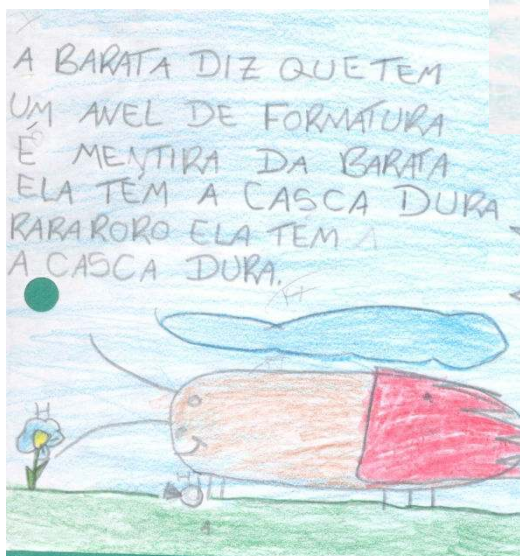 A BARATA DIZ QUE TEM
UM ANEL DE FORMATURA
É MENTIRA DA BARATA
ELA TEM A CASCA DURA
RARARORO ELA TEM
A CASCA DURA.